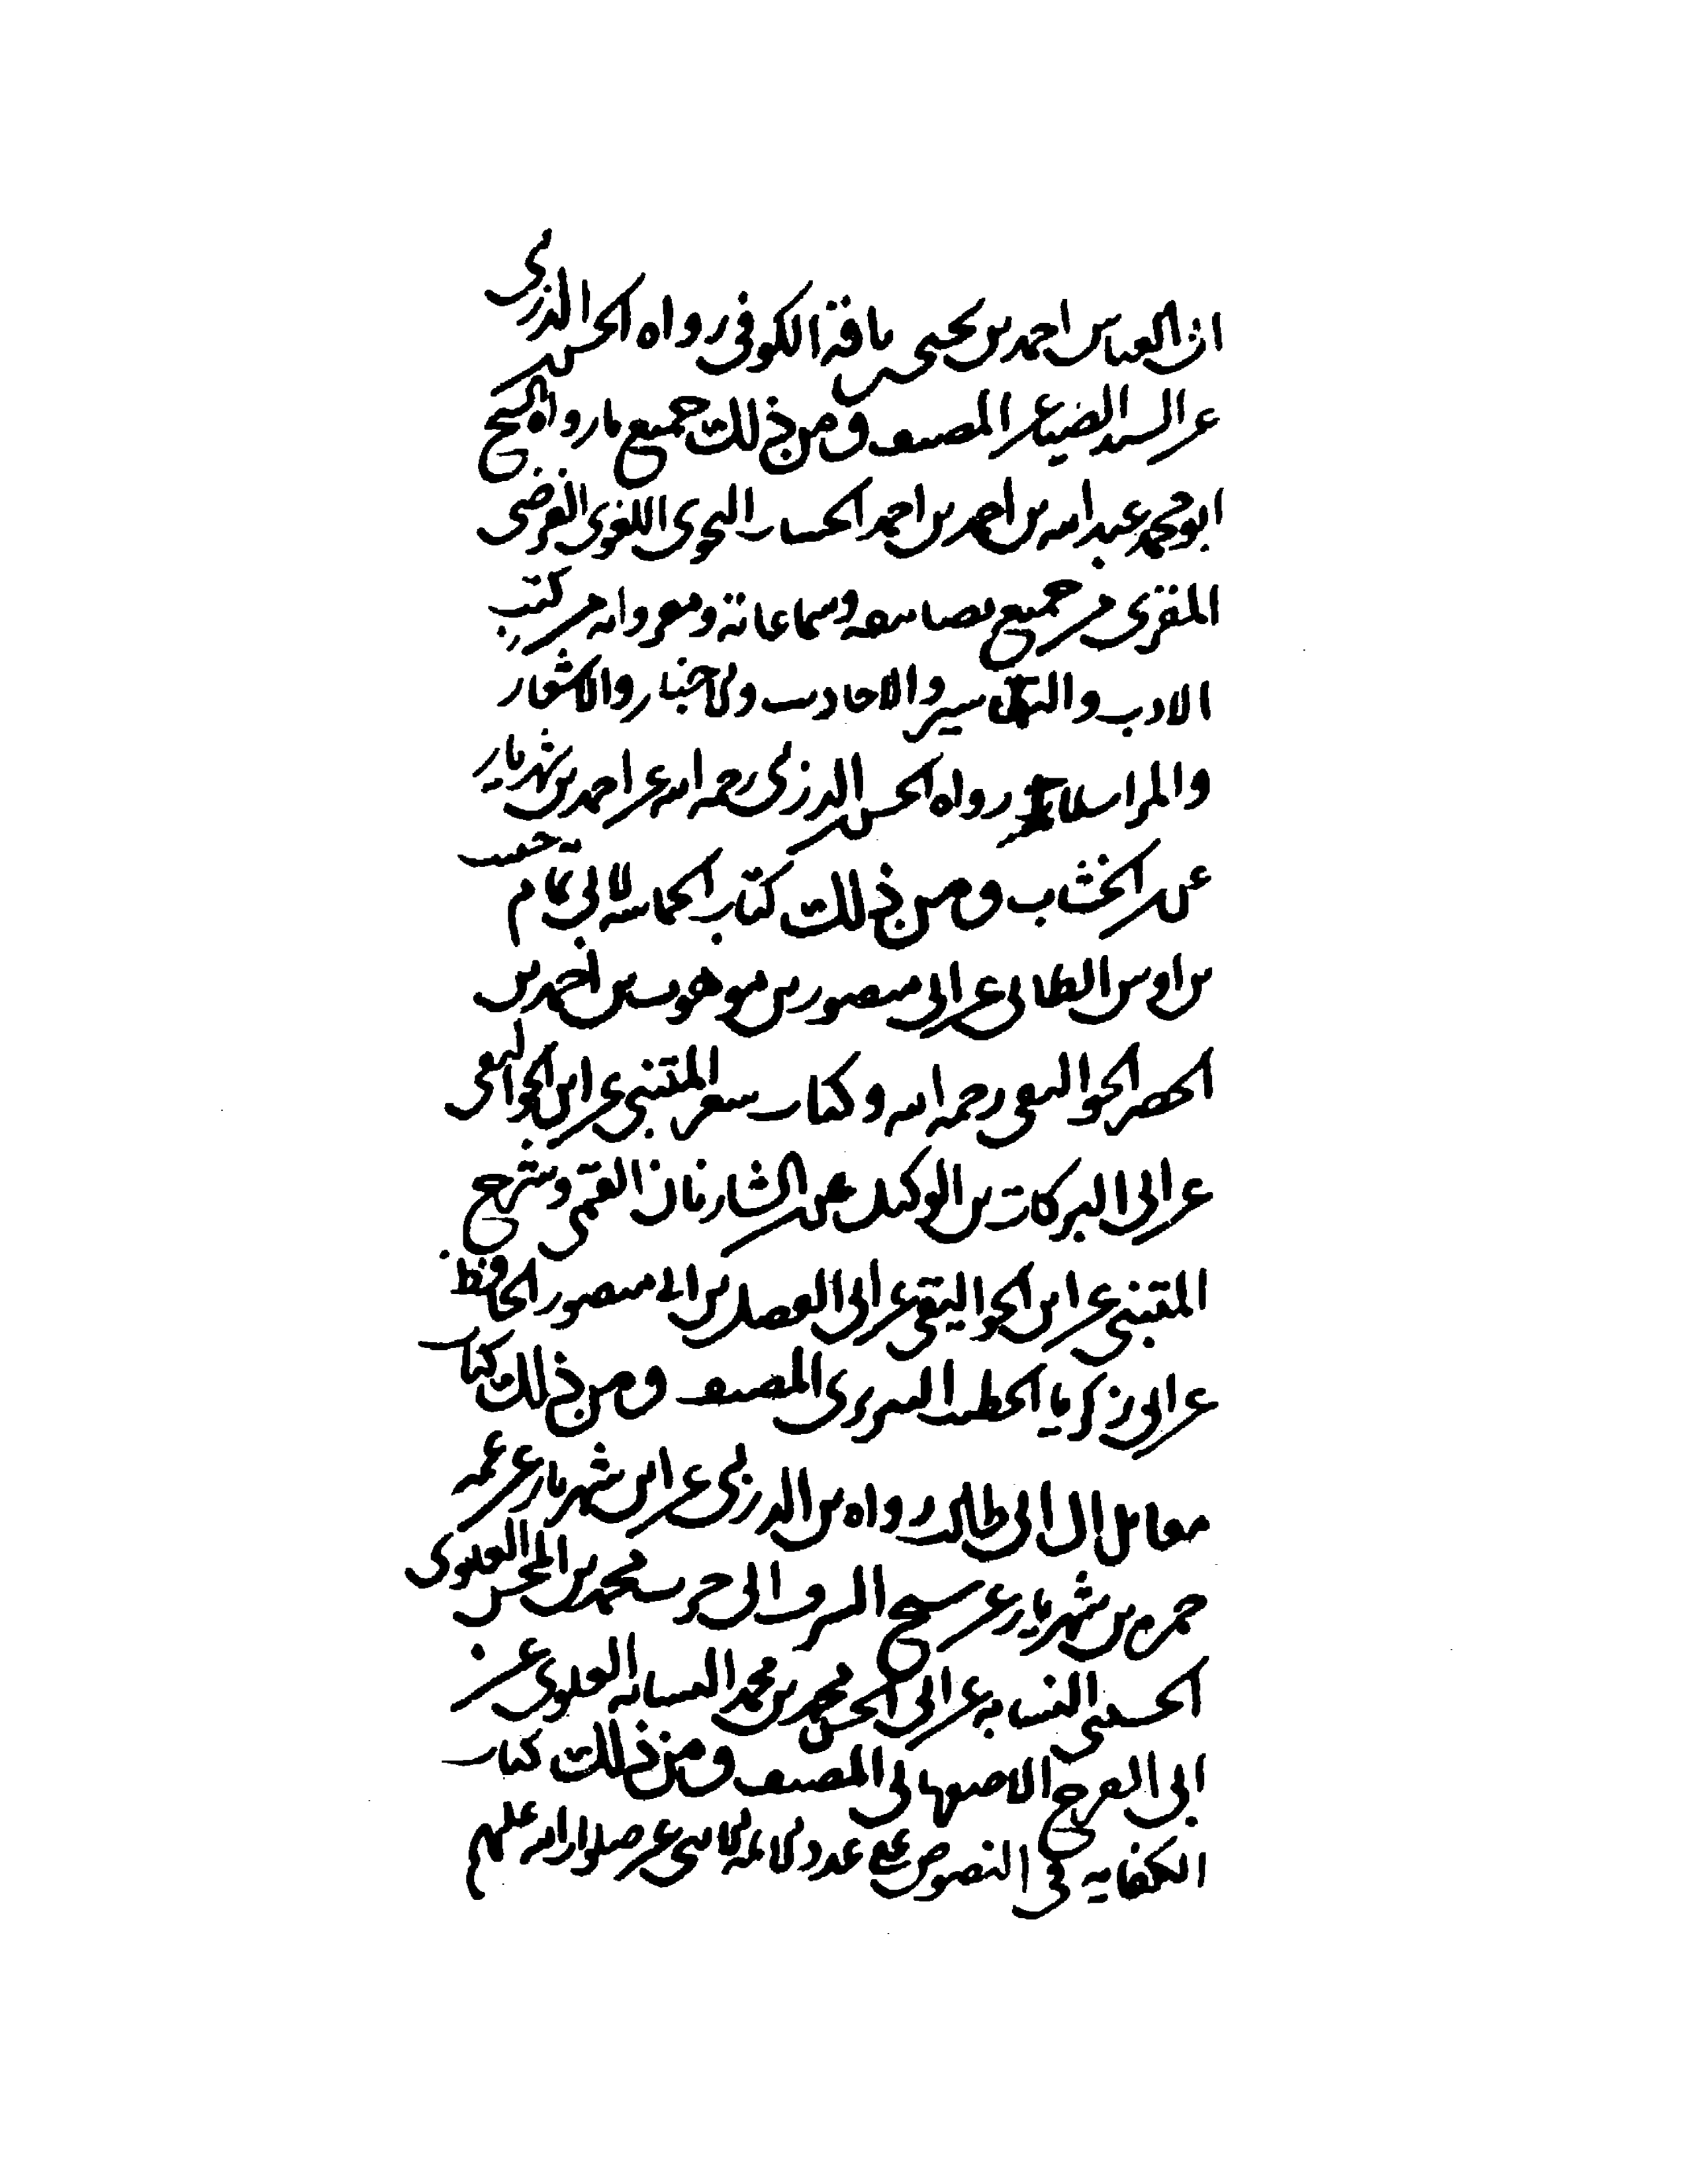 ابن العباس احمد بن يحيى بن ناقة الكوفي رواه الحسن الدربي
عن السيد المصنف ومن ذلك جميع ما رواه الشيخ
ابو محمد عبد الله بن احمد بن احمد الخشاب النحوي اللغوي الفرضي
المقري من جميع تصانيفه وسماعاته ومقرواته من كتب
الادب والتفاسير والاحاديث والاخبار والاشعار
والمراسلات رواه الحسن الدربي رحمه الله عن احمد بن شهريار
عن ابن الخشاب ومن ذلك كتاب الحماسه لابي تمام حبيب
بن اوس الطائي عن ابي منصور بن موهوب بن احمد بن
الخضر الجواليقي رحمه الله وكتاب شعر المتنبي عن ابن الجواليقي
عن ابي البركات بن الوكيل عن ابن الشاربان القمي وشرح
المتنبي عن ابن الجواليقي عن ابي الفضل بن ابي منصور الحافظ
عن ابي زكريا الخطيب التبريزي المصنف ومن ذلك كتاب
مقاتل ال ابي طالب رواه بن الدربي عن ابن شهريار عن عمه
حمزه بن شهريار عن الشيخ محمد بن المحسن العلوي
الحسيني النسابه عن ابي الحسن محمد بن محمد النسابه العلوي عن
ابي الفرج الاصبهاني المصنف ومن ذلك كتاب
الكفايه في النصوص على عدد الائمه الاثني عشر صلوات الله عليهم